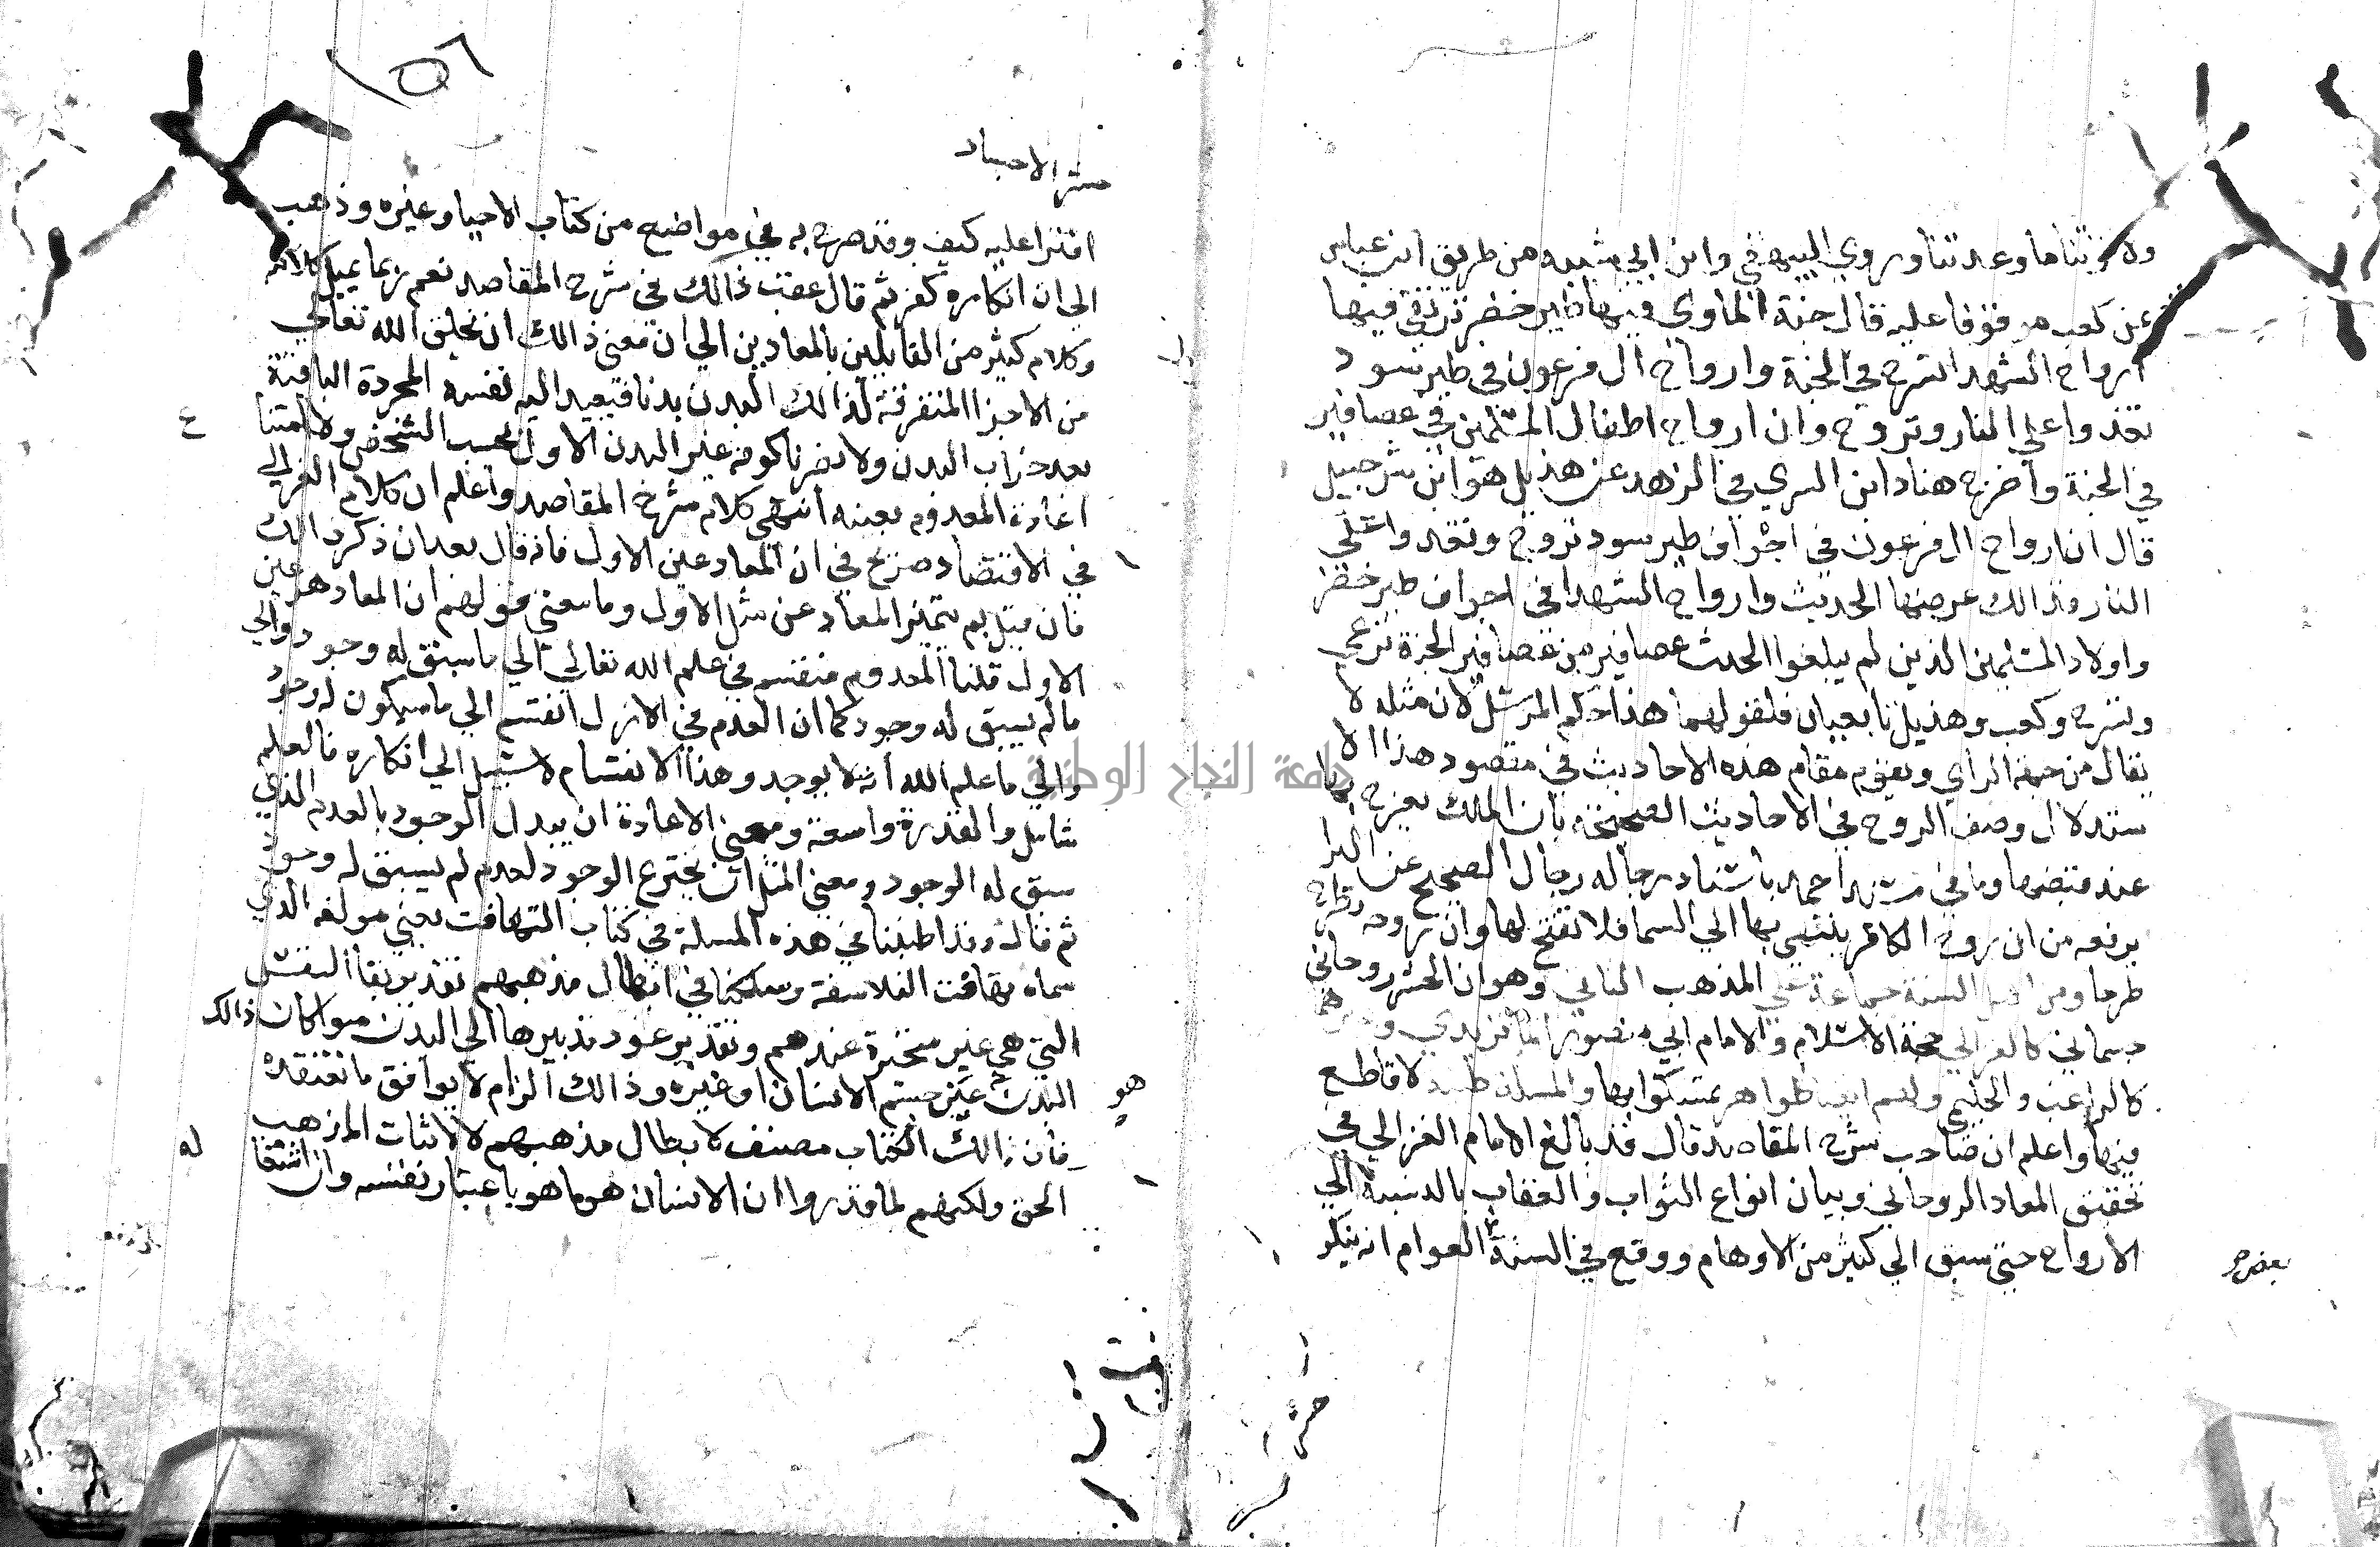 ولا تؤتنا ما وعدتنا وروي البيهقي وابن ابي شيبه من طريق ابن عباس
عن كعب موقوفا عليه قال جنة الماوي فيها طير خضر ترتقي فيها
ارواح الشهدا تسرح في الجنة وارواح ال فرعون في طير سود
تغدوا علي النار وتروح وان ارواح اطفال المسلمين في عصافير
في الجنة واخرج هناد ابن السري في الزهد عن هذيل هو ابن شرحبيل
قال ان ارواح ال فرعون في اجواف طير سود تروح وتغدوا علي
النار وذالك عرضها الحديث وارواح الشهدا في اجواف طير خضر
واولاد المسلمين الذين لم يبلغوا الحدث عصافير من عصافير الجنة ترعي
وتسرح وكعب وهذيل تابعيان فلقولهما هذا حكم المرسل لان مثله لا
يقال من جهة الراي ويقوم مقام هذه الاحاديث في مقصود هذا الا
ستدلال وصف الروح في الاحاديث الصحيحة بان الملك يعرج بها
عند قبضها وما في مسند احمد باسناد رجاله رجال الصحيح عن البرا
يرفعه من ان روح الكافر ينتهي بها الي السما فلا تفتح لها وان روحه تطرح
طرحا ومن اهل السنة جماعة علي المذهب الثاني وهو ان الحشر روحاني
جسماني كالغزالي حجة الاسلام والامام ابي منصور الماتريدي وغيرهما
كالراغب والحليمي ولهم ايضا ظواهر يتمسكوا بها والمسلة ظنية لا قاطع
فيها واعلم ان صاحب شرح المقاصد قال قد بالغ الامام الغزالي في
تحقيق المعاد الروحاني وبيان انواع الثواب والعقاب بالنسبة الي
الارواح حتي سبق الي كثير من الاوهام ووقع في السنة العوام انه ينكر
بعض
١٥٦
حشر الاجساد
افترا عليه كيف وقد صرح به في مواضع من كتاب الاحيا وغيره وذهب
الي ان انكاره كفر ثم قال عقب ذالك في شرح المقاصد نعم ربما يميل كلامه
وكلام كثير من القايلين بالمعادين الي ان معني ذالك ان يخلق الله تعالي
من الاجزا المتفرقة لذالك البدن بدنا فيعيد اليه نفسه المجردة الباقية
بعد خراب البدن ولا يضرنا كونه غير البدن الاول بحسب الشخص ولا امتنا
ع
اعادة المعدوم بعينه انتهي كلام شرح المقاصد واعلم ان كلام الغزالي
في الاقتصاد صريح في ان المعاد عين الاول فانه قال بعد ان ذكر ذالك
فان قيل بم يتميز المعاد عن مثل الاول وما معني قولهم ان المعاد هو عين
الاول قلنا المعدوم منقسم في علم الله تعالي الي ما سبق له وجود والي
ما لم يسبق له وجود كما ان العدم في الازل انقسم الي ما سيكون له وجود
والي ما علم الله انه لا يوجد وهذا الانقسام لا سبيل الي انكاره فالعلم
شامل والقدرة واسعة ومعني الاعادة ان يبدل الوجود بالعدم الذي
سبق له الوجود ومعني المثل ان يخترع الوجود لعدم لم يسبق له وجود
ثم قال وقد اطنبنا في هذه المسلة في كتاب التهافت يعني مولفه الذي
سماه تهافت الفلاسفة وسلكنا في ابطال مذهبهم تقدير بقا النفس
التي هي غير متحيزة عندهم وتقدير عود تدبيرها الي البدن سوا كان ذالك
البدن عين جسم الانسان او غيره وذالك الزام لا يوافق ما نعتقده
هو
فان ذالك الكتاب مصنف لابطال مذهبهم لا لاثبات المذهب
الحق ولكنهم لما قدروا ان الانسان هو ما هو باعتبار نفسه وان اشتغا
له
جامعة النجاح الوطنية